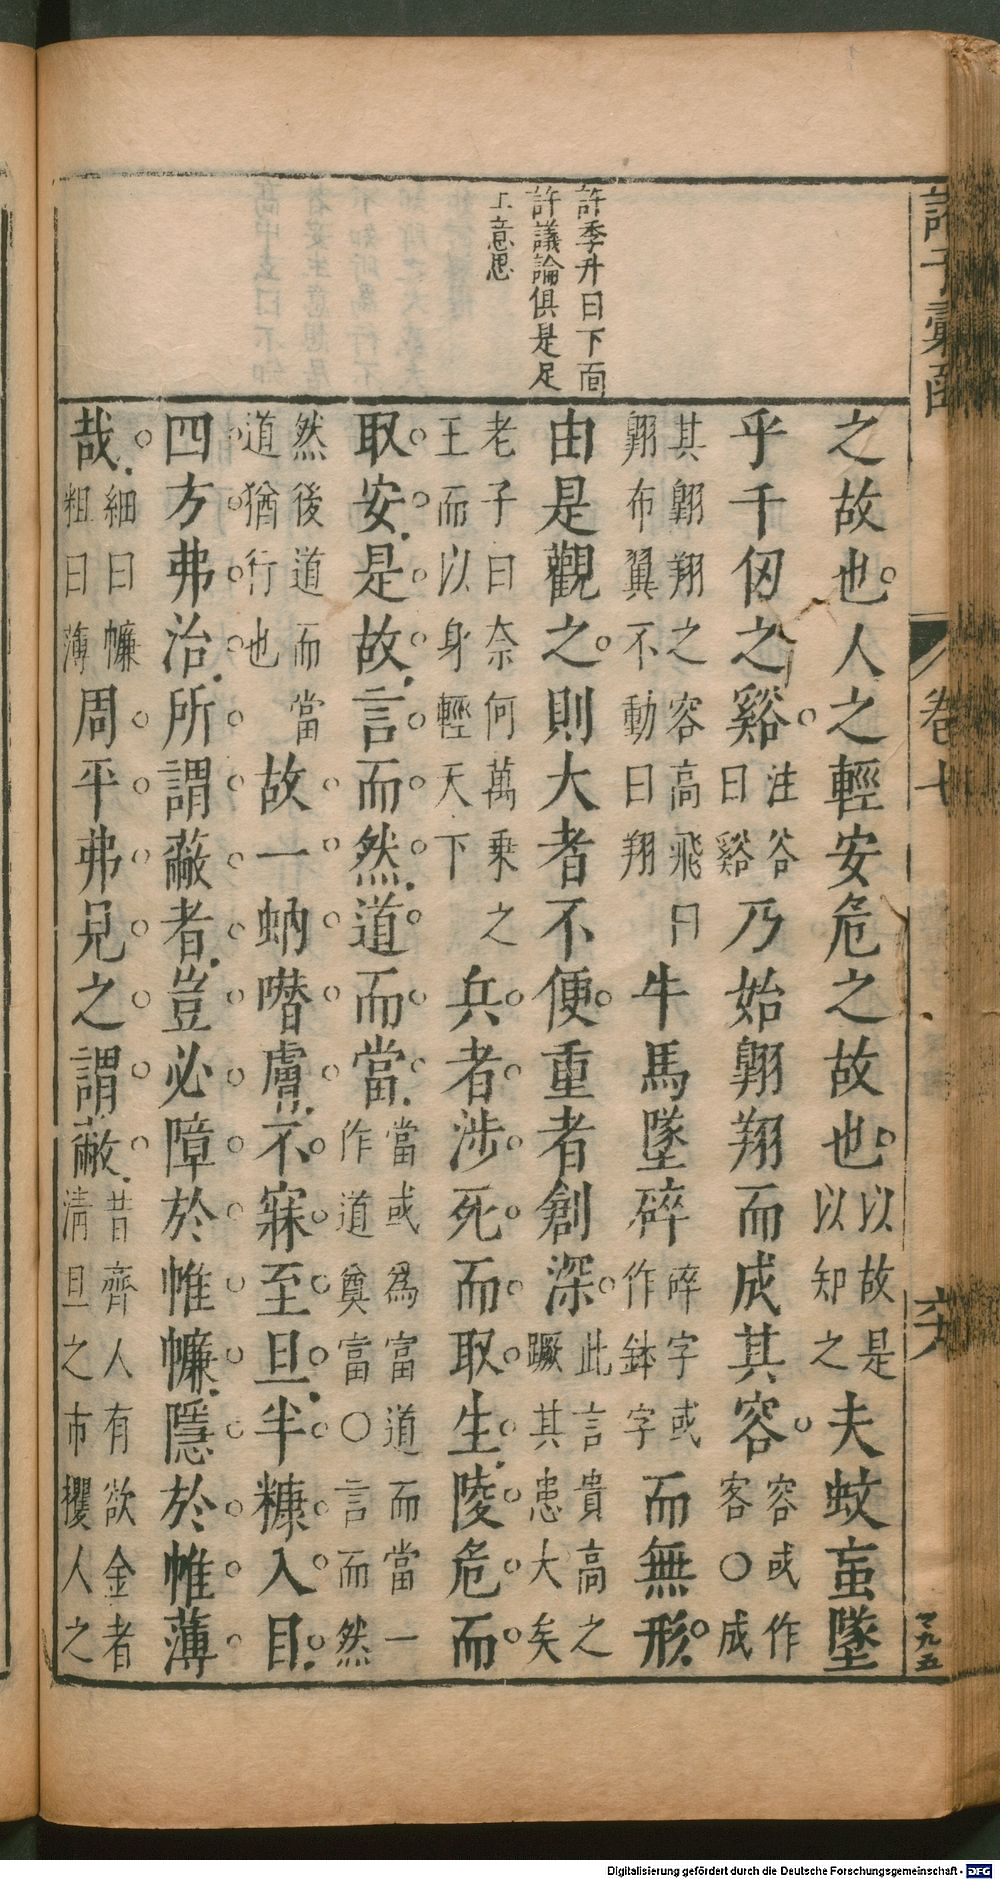 許季升曰下面
許議論俱是足
上意思
之故也人之輕安危之故也以故是以知之夫蚊䖟墜
乎千仞之谿注谷曰谿乃始翺翔而成其容容或作客○成
其翺翔之容高飛曰翺布翼不動曰翔牛馬墜碎碎字或作鉢字而無形
由是觀之則大者不便重者創深此言貴高之蹶其患大矣
老子曰奈何萬乘之王而以身輕天下兵者涉死而取生陵危而
取安是故言而然道而當當或爲富道而當一作道奠富○言而然
然後道而當道猶行也故一蚋噆膚不寐至旦半糠入目
四方弗治所謂蔽者豈必障於帷㡘隱於帷薄
哉細曰㡘粗曰薄周平弗見之謂蔽昔齊人有欲金者清旦之市攫人之
卷七
Digitalisierung gefördert durch die Deutsche Forschungsgemeinschaft - DFG